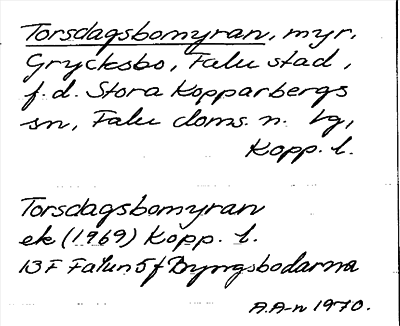 Torsdagsbomyran, myr,
Grycksbo, Falu stad,
f.d. Stora Kopparbergs
sn, Falu doms. n. tg,
Kopp. l.
Torsdagsbomyran
ek (1969) Kopp. l.
13 F Falun 5 f Byngsbodarna
A.A-n 1970.